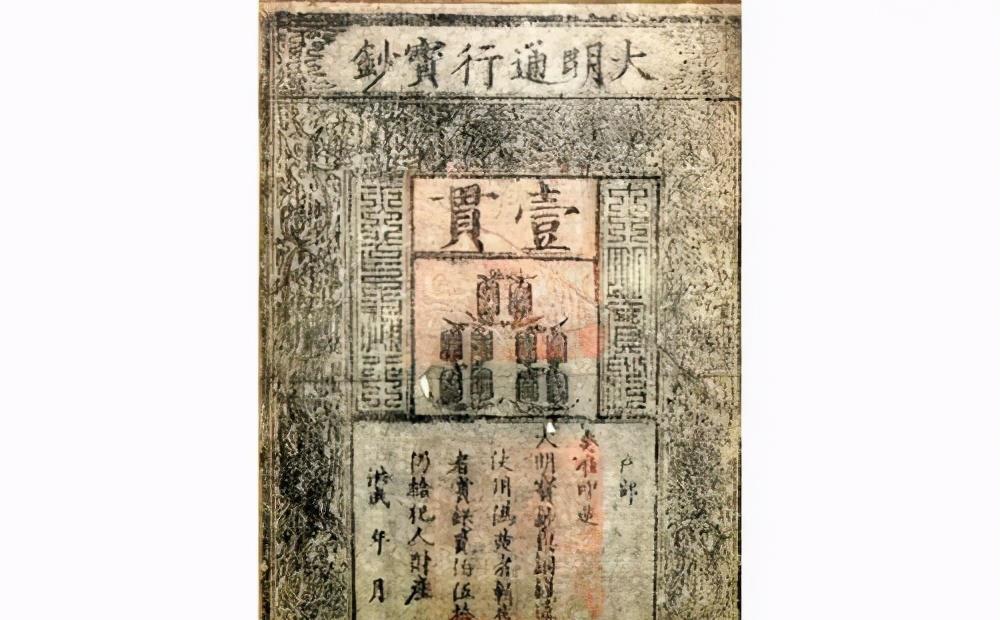 大明通行寶鈔
壹貫
戶部
奏准印造
大明寶鈔與銅錢通
使用偽造者斬告
者賞銀貳伯伍拾
仍給犯人財產
洪武 年 月